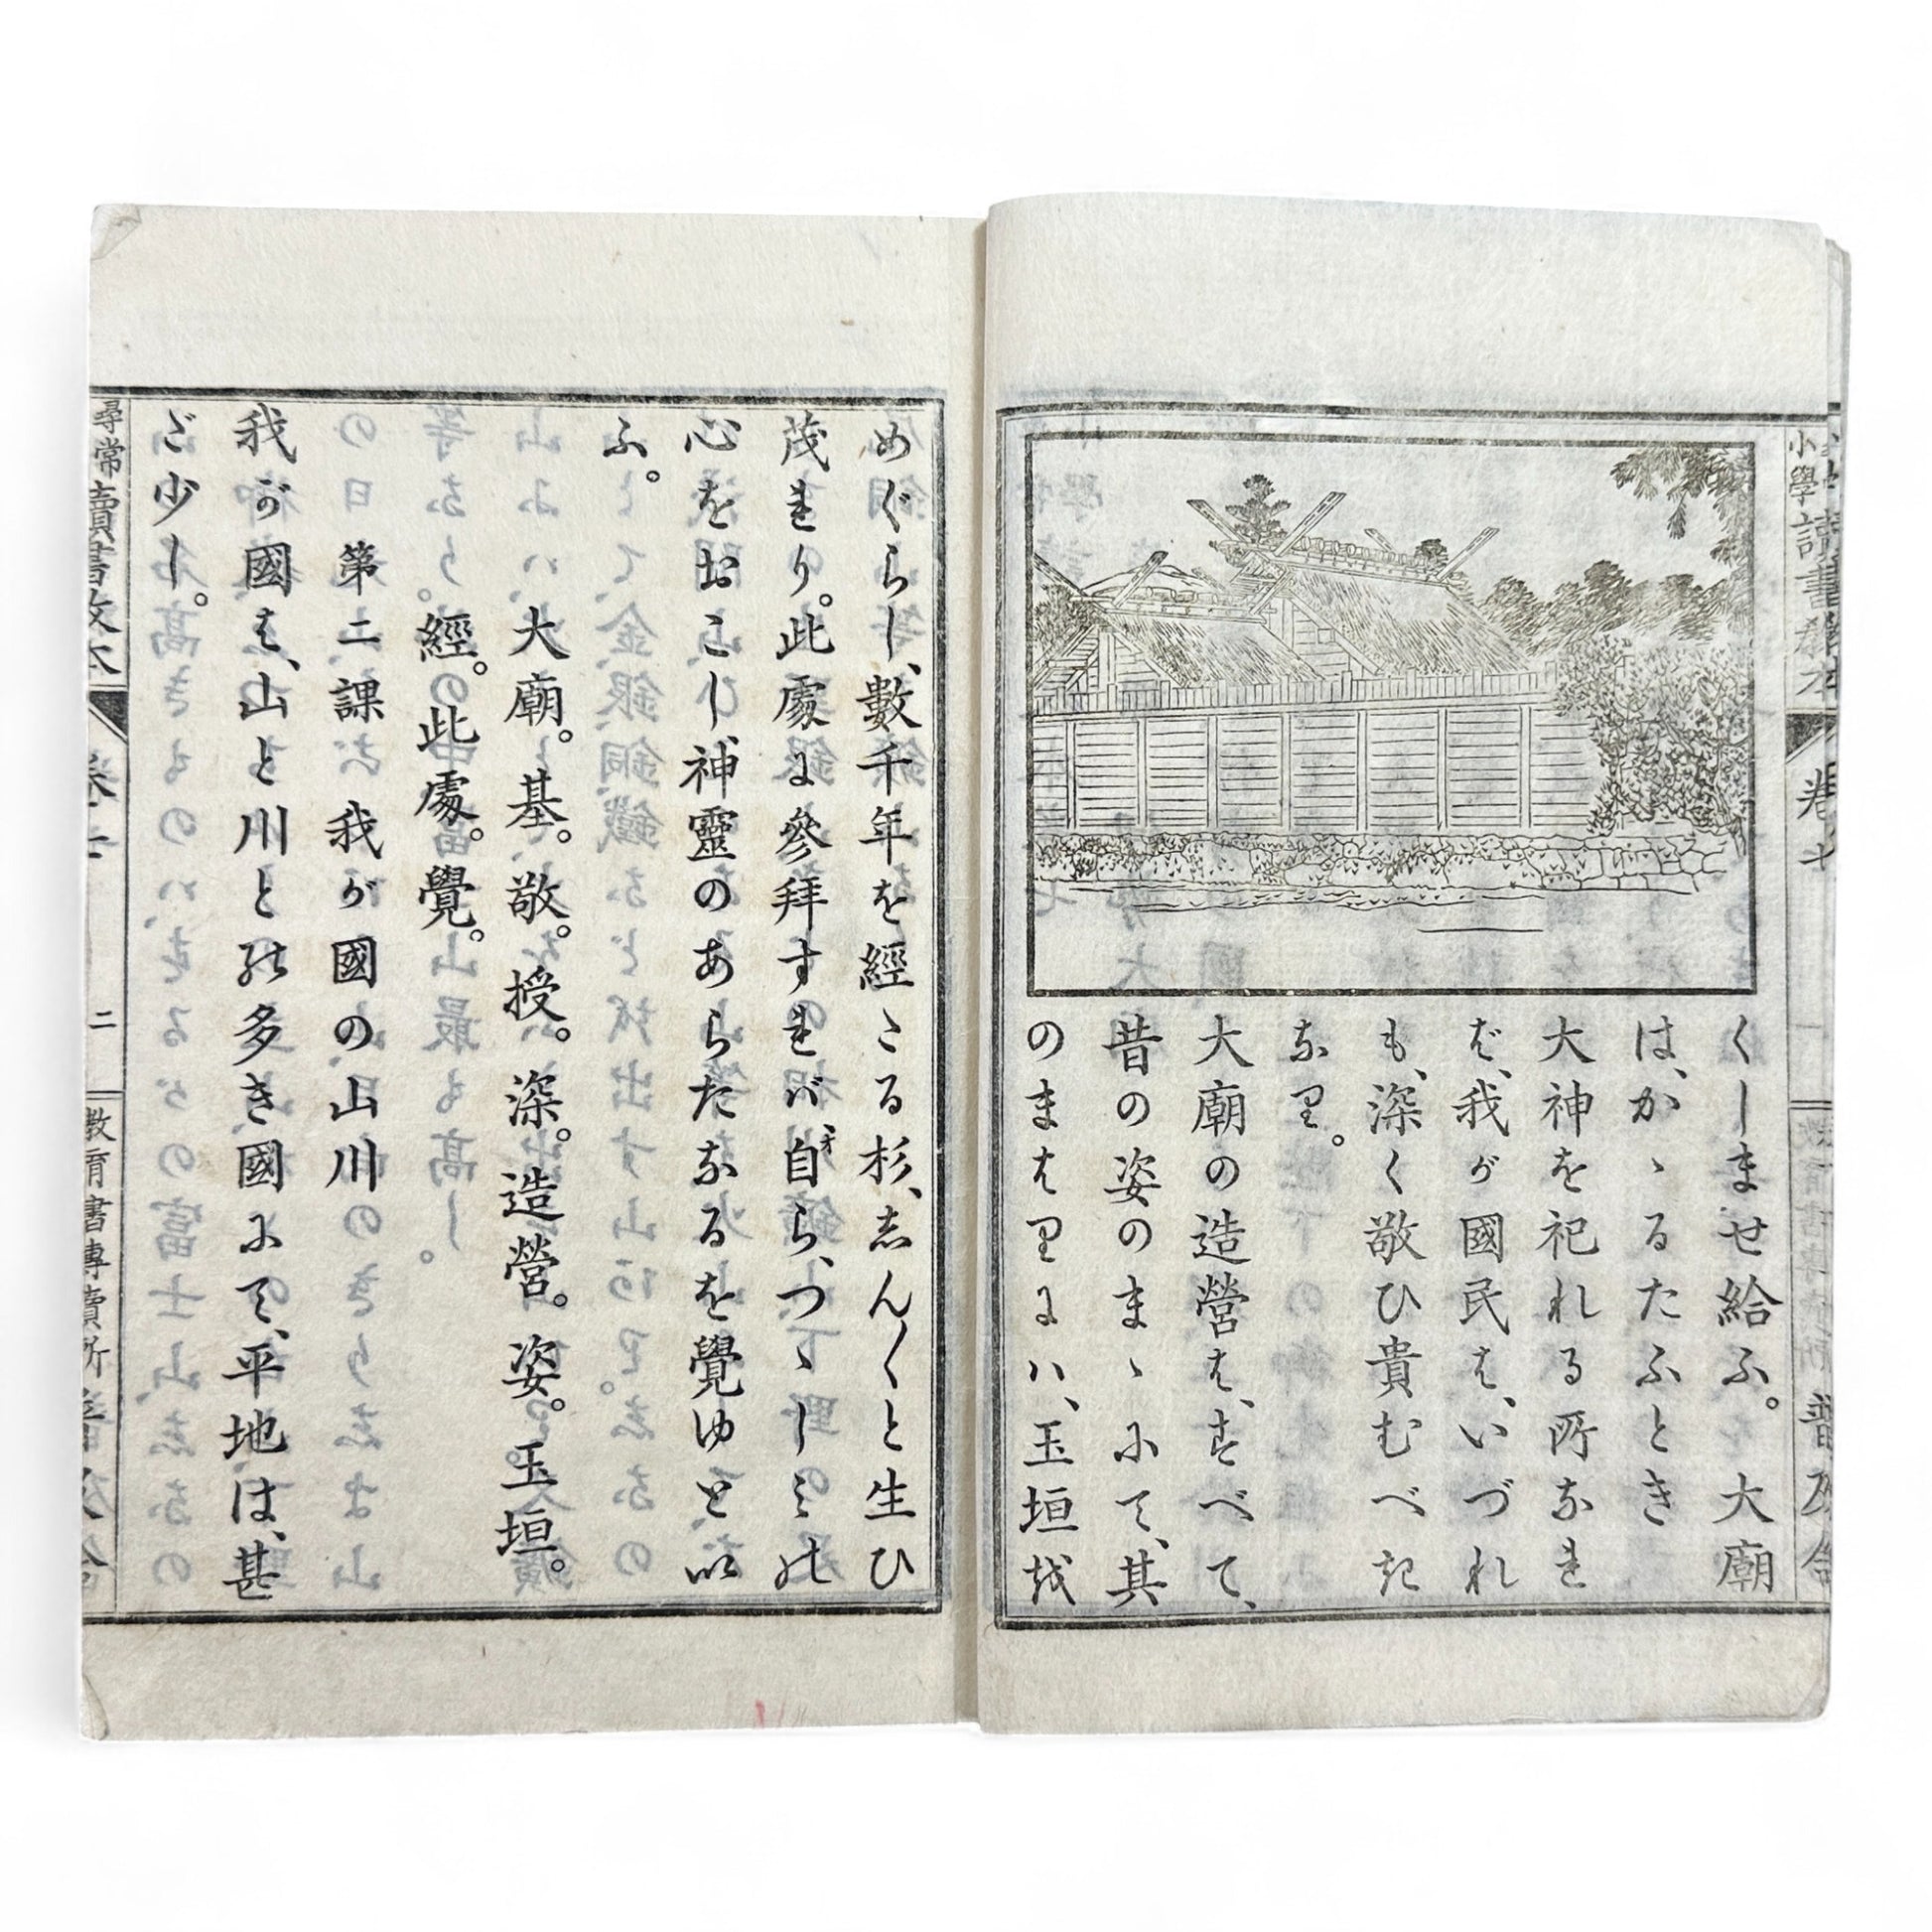 くしませ給ふ。大廟
は、かゝるたふとき
大神を祀れる所なれ
ば、我が國民は、いづれ
も、深く敬ひ貴むべき
なり。
大廟の造營は、すべて、
昔の姿のまゝにて、其
のまはりには、玉垣を
めぐらし、數千年を經たる杉、しん〱と生ひ
茂れり。此處に參拜すれば、自ら、つゝしみの
心をおこし、神靈のあらたなるを覺ゆとい
ふ。
大廟。基。敬。授。深。造營。姿。玉垣。
經。此處。覺。
第二課 我が國の山川
我が國は、山と川との多き國にて、平地は、甚
だ少し。
尋常
讀書教本
卷七
二
教育書專賣所
普及舍